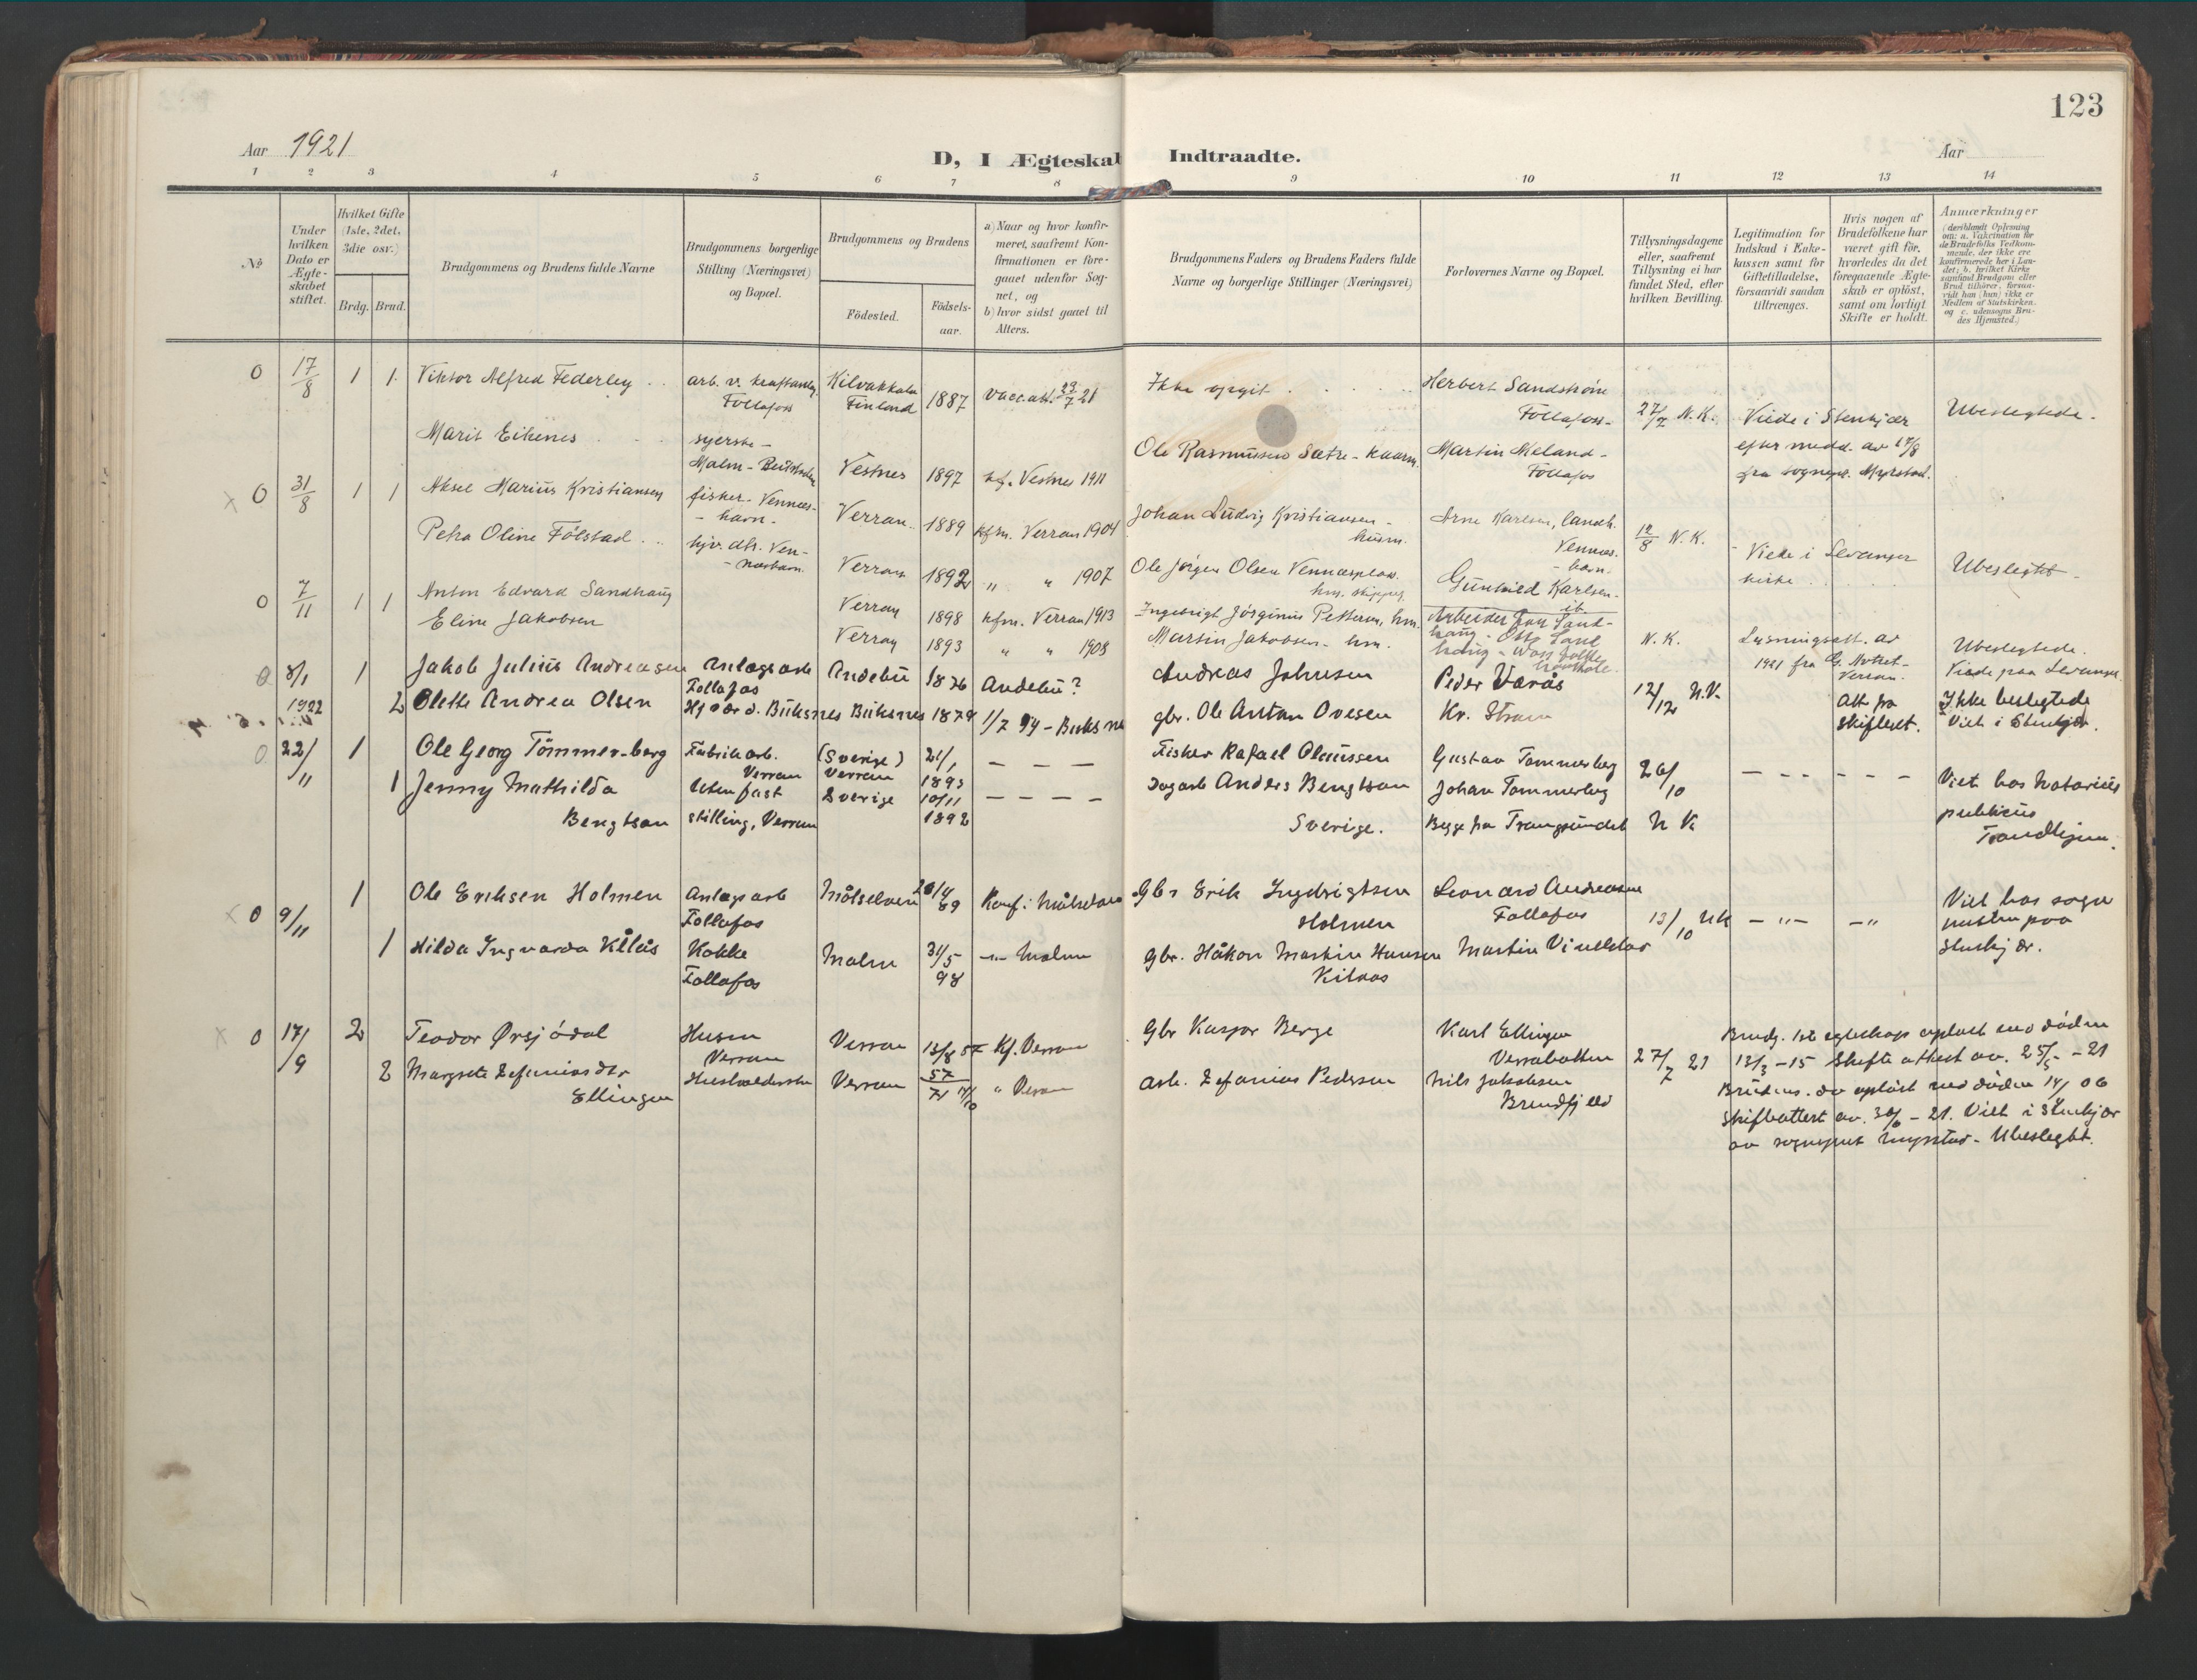 123
Aar 1921
D, I Ægteskab Indtraadte.
Aar
1 2 3 4 5 6 7 8 9 10 11 12 13 14
No
Under hvilken Dato er Ægteskabet stiftet.
Hvilket Gifte (1ste, 2det, 3die osv.)
Brdg. Brud.
Brudgommens og Brudens fulde Navne
Brudgommens borgerlige Stilling (Næringsvei) og Bopæl.
Brudgommens og Brudens
Födested.
Födselsaar.
a) Naar og hvor konfirmeret, saafremt Konfirmationen er foregaaet udenfor Sognet, og
b) hvor sidst gaaet til Alters.
Brudgommens Faders og Brudens Faders fulde Navne og borgerlige Stillinger (Næringsvei)
Forlovernes Navne og Bopæl.
Tillysningsdagene eller, saafremt Tillysning ei har fundet Sted, efter hvilken Bevilling.
Legitimation for Indskud i Enkekassen samt for Giftetilladelse, forsaavidt saadan tiltrænges.
Hvis nogen af Brudefolkene har været gift før, hvorledes da det foregaaende Ægteskab er oplöst, samt om lovligt Skifte er holdt.
Anmærkninger (deriblandt Oplysning om: a. Vakcination for de Brudefolks Vedkommende, der ikke ere konfirmerede her i Landet; b. hvilket Kirkesamfund Brudgom eller Brud tilhører, forsaavidt han (hun) ikke er Medlem af Statskirken. og c. udensogns Brudes Hjemsted.)
0 17/8 1 1 Viktor Alfred Federley arb. v. kraftanleg. Follafoss Kilvakkala Finland 1887 vacc.att. 23/7 21 Ikke opgit Herbert Sandström Follafoss- 27/7 N.K. Viede i Stenkjær efter medd. av 17/8 fra sognepr. Myrstad. Ubeslegtede.
Marit Eikenes syerske- Malm- Beitstaden Vestnes 1897 kf. Vestnes 1911 Ole Rasmussen Sætre - kaarm. Martin Meland- Follafos
x 0 31/8 1 1 Aksel Marius Kristiansen fisker- Vennes- -havn- Verran 1889 kfm. Verran 1904 Johan Ludvig Kristiansen - husm. Arne Karlsen, landh. Vennes- -havn- 12/8 N.K. Viede i Levanger kirke. Ubeslegtet-
Petra Oline Fölstad hjv. dtr. Ven- -neshavn. Verran 1892 " " 1907 Ole Jörgen Olsen Vennesplass. hm. skipper Gunhild Karlsen- ib
0 7/11 1 1 Anton Edvard Sandhaug Verran 1898 kfm. Verran 1913 Ingebrigt Jörginus Pettersen, hm. Arbeider Jon Sandhaug - Otto Sandhaug - N.K. Lysningsatt. av 1921 fra G. Verran. Ubeslegtede. Viede paa Levanger
Eline Jakobsen Verran 1893 " " 1908 Martin Jakobsen - hm.
0 8/1 1922 1 Jakob Julius Andreasen Anlægsarb Follafos Andebu 1876 Andebu? Andreas Johnsen Peder Varås 12/12 N.K. Att fra skifteret. Ikke beslegtede Viet i Stenkjær.
2 Olette Andrea Olsen Buksnes Buksnes 1879 1/7 94 - Buksnes gbr. Ole Antan Ovesen Kr. Strøm
0 22/11 1 Ole Georg Tömmer-berg Fabrikarb. Verran (Sverige) Verran 21/1 1893 — — — Fisker Rafael Olaussen Gustav Tømmerberg 26/10 N K. — - - - - - Viet hos Notarius publicus Trondhjem.
1 Jenny Mathilda Bengtson Uten fast stilling, Verran Sverige 10/11 1892 — — — — Dagarb Anders Bengtson Sverige. Johan Tømmerberg Begge fra Trangsundet
x 0 9/11 1 Ole Eriksen Holmen Anlægsarb Follafos Målselven 20/4 89 Konf. i Målselven Gbr Erik Ingbrigtsen Holmen Leonard Andreassen Follafos 13/10 NK — „ — — „ Viet hos sogneprsten paa Stenkjær.
1 Hilda Ingvarda Kilås Kokke Follafos Malm 31/5 98 — „ — Malm Gbr. Håkon Martin Hansen Kilaas Martin
x 0 17/9 2 Teodor Ørsjødal Husm Verran Verran 13/8 57 Kf. Verran Gbr Kaspar Berge Karl Ellingen Verrabotten 27/7 21 Brudg. 1ste egteskap oplöst ved döden 13/3 -15 Skifteattest av. 25/5 - 21
2 Margrete Zefaniasdtr Ellingen Husholderske Verran 57 71 14/10 " Verran arb. Zefanias Pedersen Nils Jakobsen Brendfjeld Brudens. do oplöst ved döden 14/ 06 skifteattest av. 30/ - 21. Viet i Stenkjær av sogneprest Myrstad - Ubeslegtet.